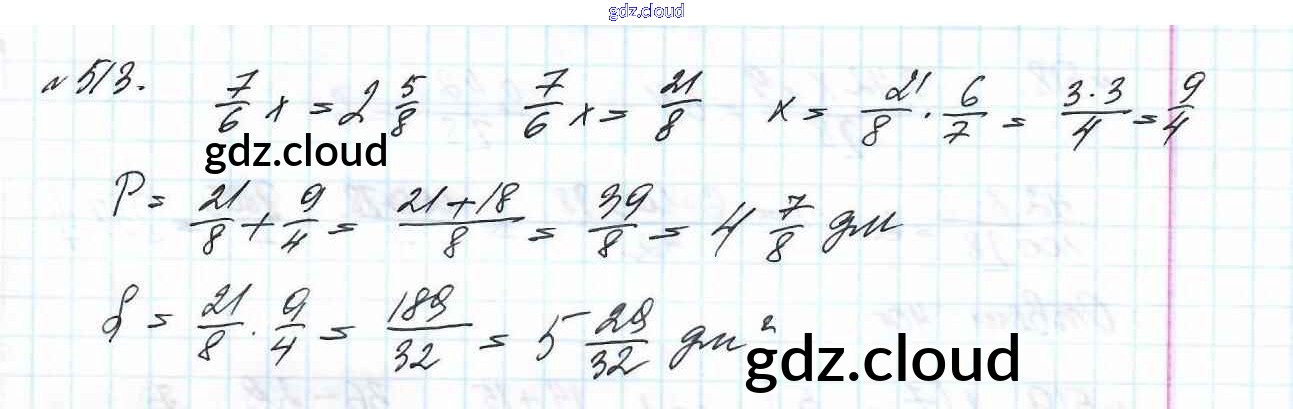 gdz.cloud
№513. 7/6 x = 2 5/8 7/6 x = 21/8 x = 21/8 · 6/7 = 3·3/4 = 9/4
gdz.cloud
P = 21/8 + 9/4 = 21+18/8 = 39/8 = 4 7/8 дм
S = 21/8 · 9/4 = 189/32 = 5 29/32 дм²
gdz.cloud